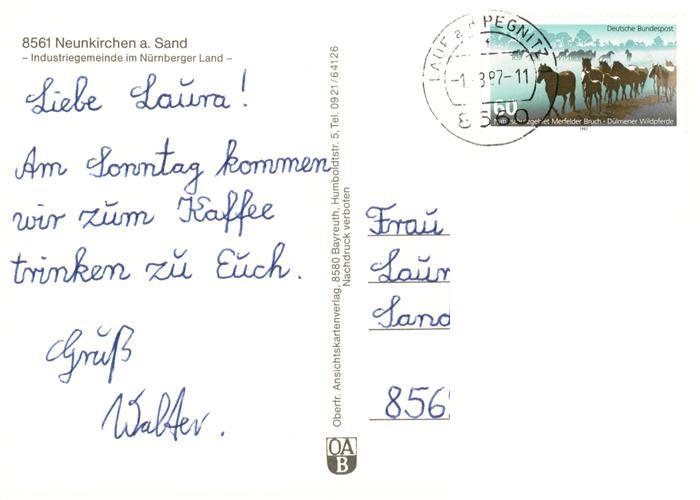 8561 Neunkirchen a. Sand
– Industriegemeinde im Nürnberger Land –
Liebe Laura!
Am Sonntag kommen
wir zum Kaffee
trinken zu Euch.
Gruß
Walter.
Oberfr. Ansichtskartenverlag, 8580 Bayreuth, Humboldtstr. 5, Tel. 0921/64126
Nachdruck verboten
OA
B
LAUF a d PEGNITZ
-11
8560
Deutsche Bundespost
60
Naturschutzgebiet Merfelder Bruch · Dülmener Wildpferde
1987
Frau
Laur
Sand
856